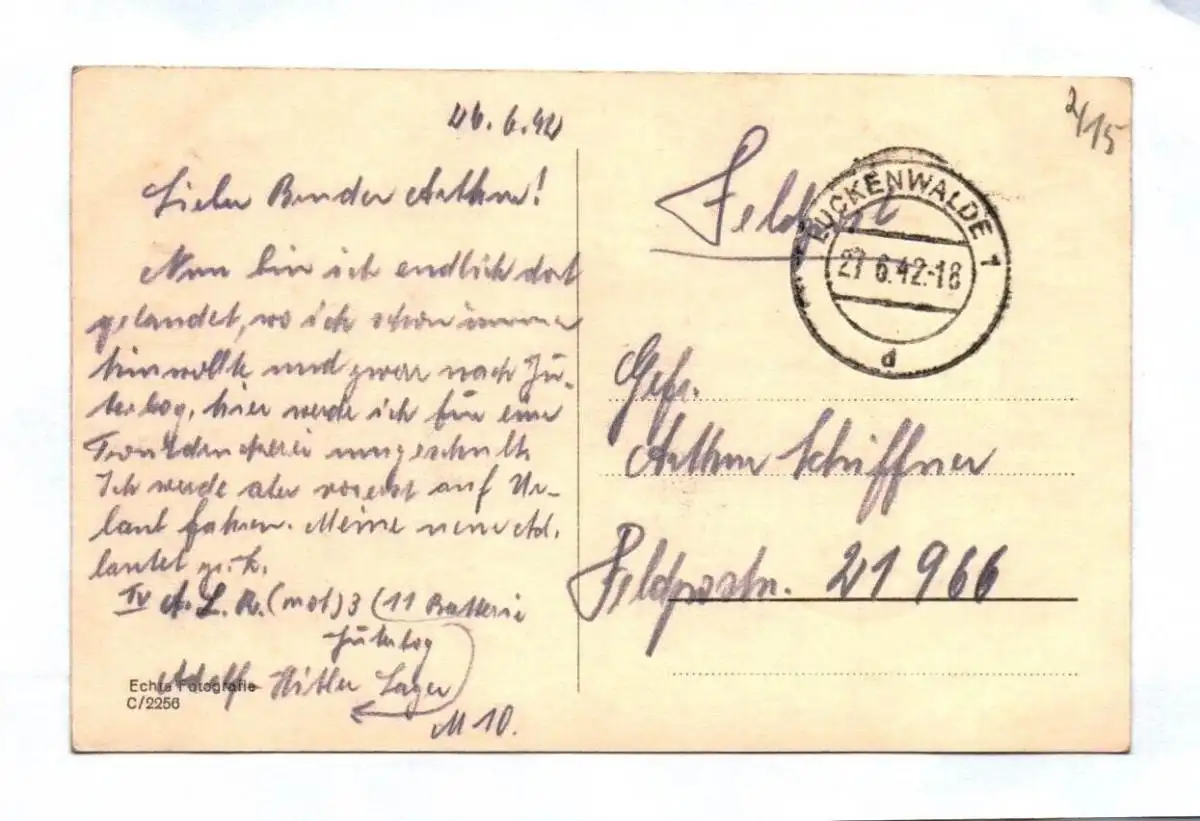 26.6.42
Lieber Bruder Arthur!
Nun bin ich endlich dort
gelandet, wo ich schon immer
hinwollte und zwar nach Jü-
terbog, hier werde ich für eine
umgeschult.
Ich werde aber vorerst auf Ur-
laub fahren. Meine neue Ad.
lautet z. Z.
IV A. L. R. (mot) 3 (11 Batterie
Jüterbog
Adolf Hitler Lager
M 10.
Echte Fotografie
C/2256
2/15
Feldpost
LUCKENWALDE 1
27 6.42.-18
d
Gefr.
Arthur Schiffner
Feldpostn. 21966